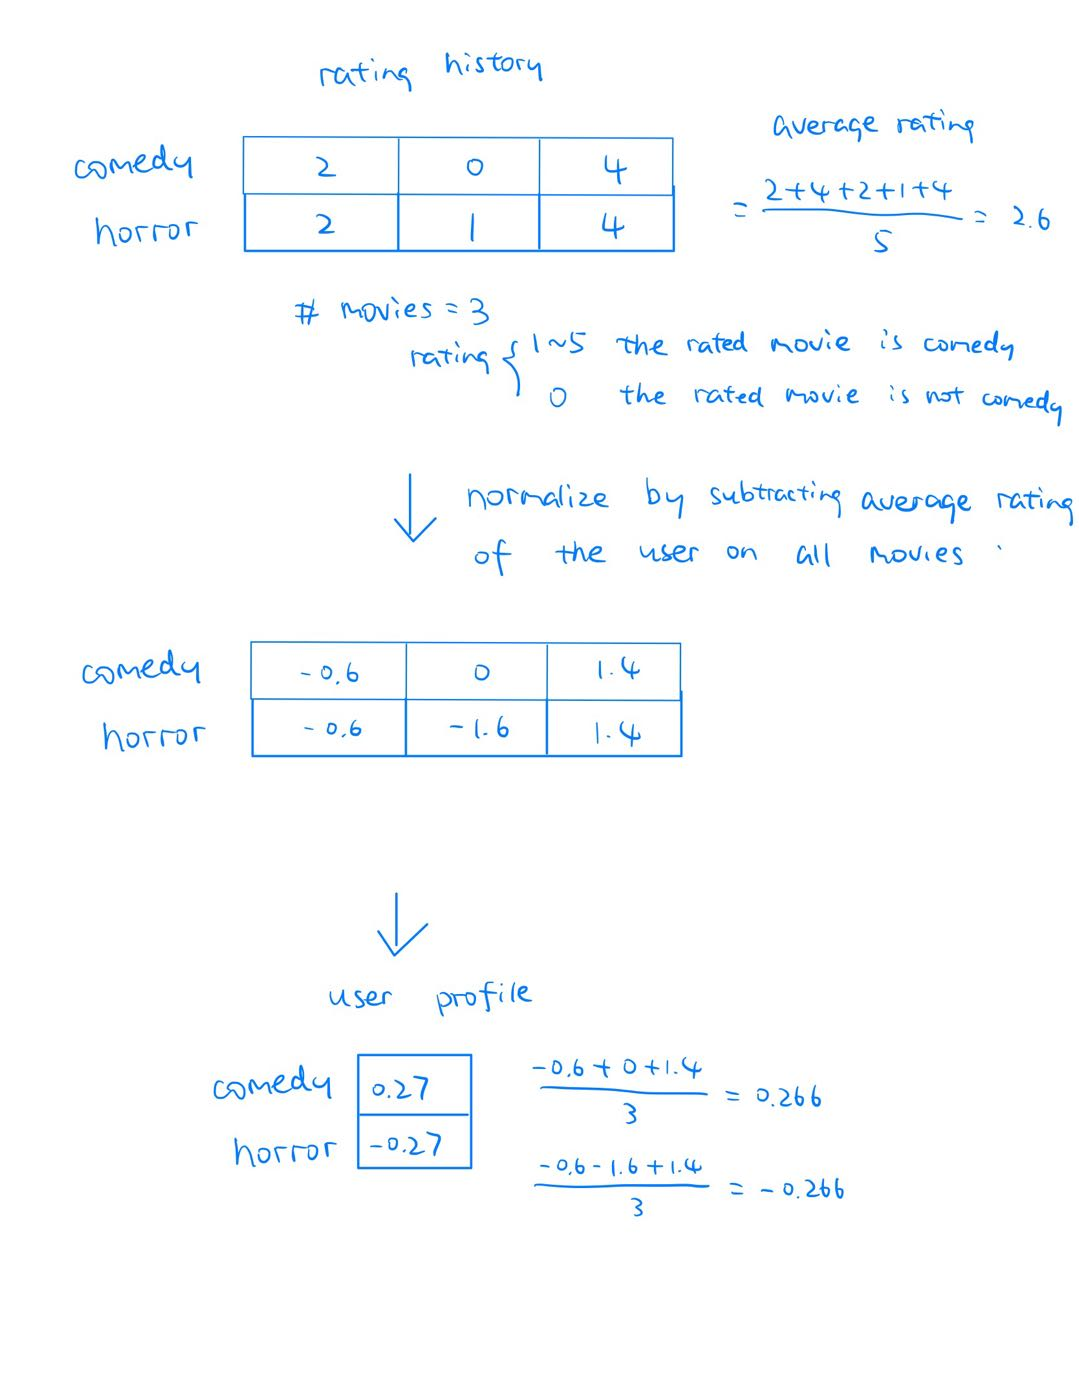 rating history
average rating
comedy 2 0 4
horror 2 1 4
= 2+4+2+1+4 / 5 = 2.6
# movies = 3
rating { 1~5 the rated movie is comedy
0 the rated movie is not comedy
↓ normalize by subtracting average rating
of the user on all movies
comedy -0.6 0 1.4
horror -0.6 -1.6 1.4
↓
user profile
comedy 0.27
horror -0.27
-0.6 + 0 + 1.4 / 3 = 0.266
-0.6 - 1.6 + 1.4 / 3 = -0.266